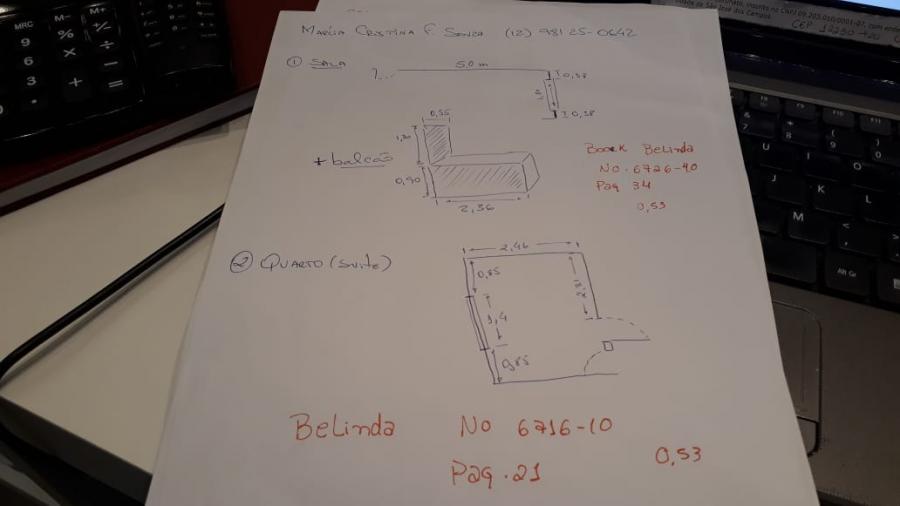 MARCIA CRISTINA F. SOUZA (12) 98125-0642
① SALA
?...
5,0 m
0,38
0,38
+ balcão
0,35
1,30
0,90
2,36
Boock Belinda
No. 6726-10
Pag 34
0,53
② QUARTO (suite)
2,46
0,85
1,4
0,85
Belinda No 6716-10
Pag. 21
0,53
MRC M- M+
CEP 12230-420